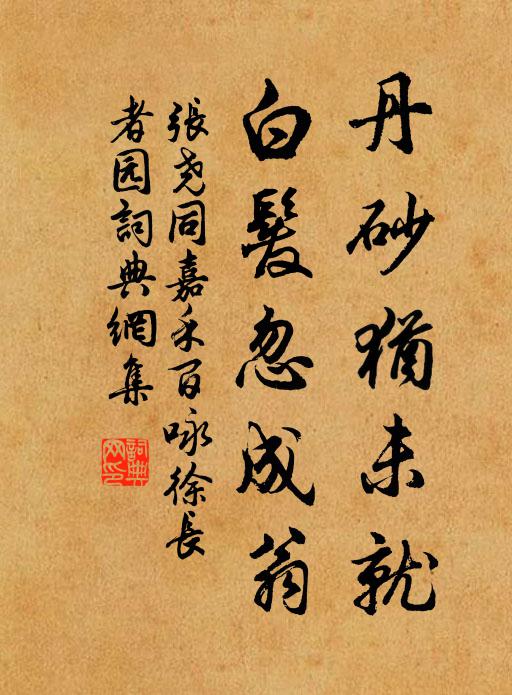 丹砂猶未就
白髮忽成翁
張尧同嘉禾百咏徐長
者园詞典網集
詞典網印